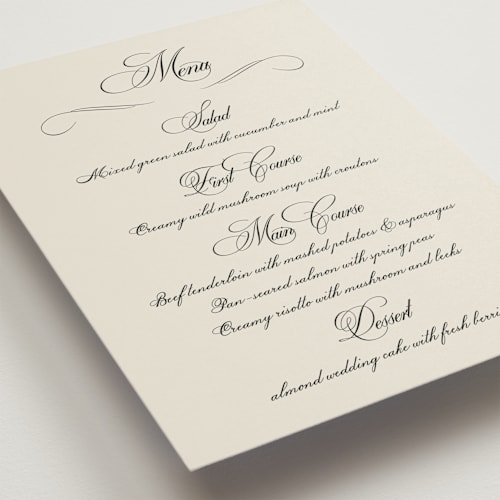 Menu
Salad
Mixed green salad with cucumber and mint
First Course
Creamy wild mushroom soup with croutons
Main Course
Beef tenderloin with mashed potatoes & asparagus
Pan-seared salmon with spring peas
Creamy risotto with mushroom and leeks
Dessert
almond wedding cake with fresh berri